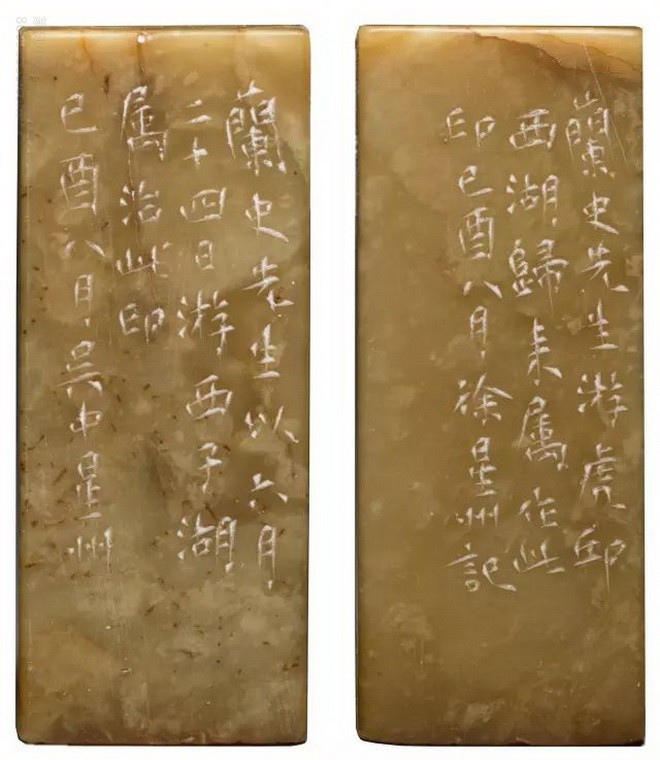 蘭史先生以六月
二十四日游西子湖
属治此印
己酉八月吳中星州
蘭史先生游虎邱
西湖歸来属作此
印己酉八月徐星州記